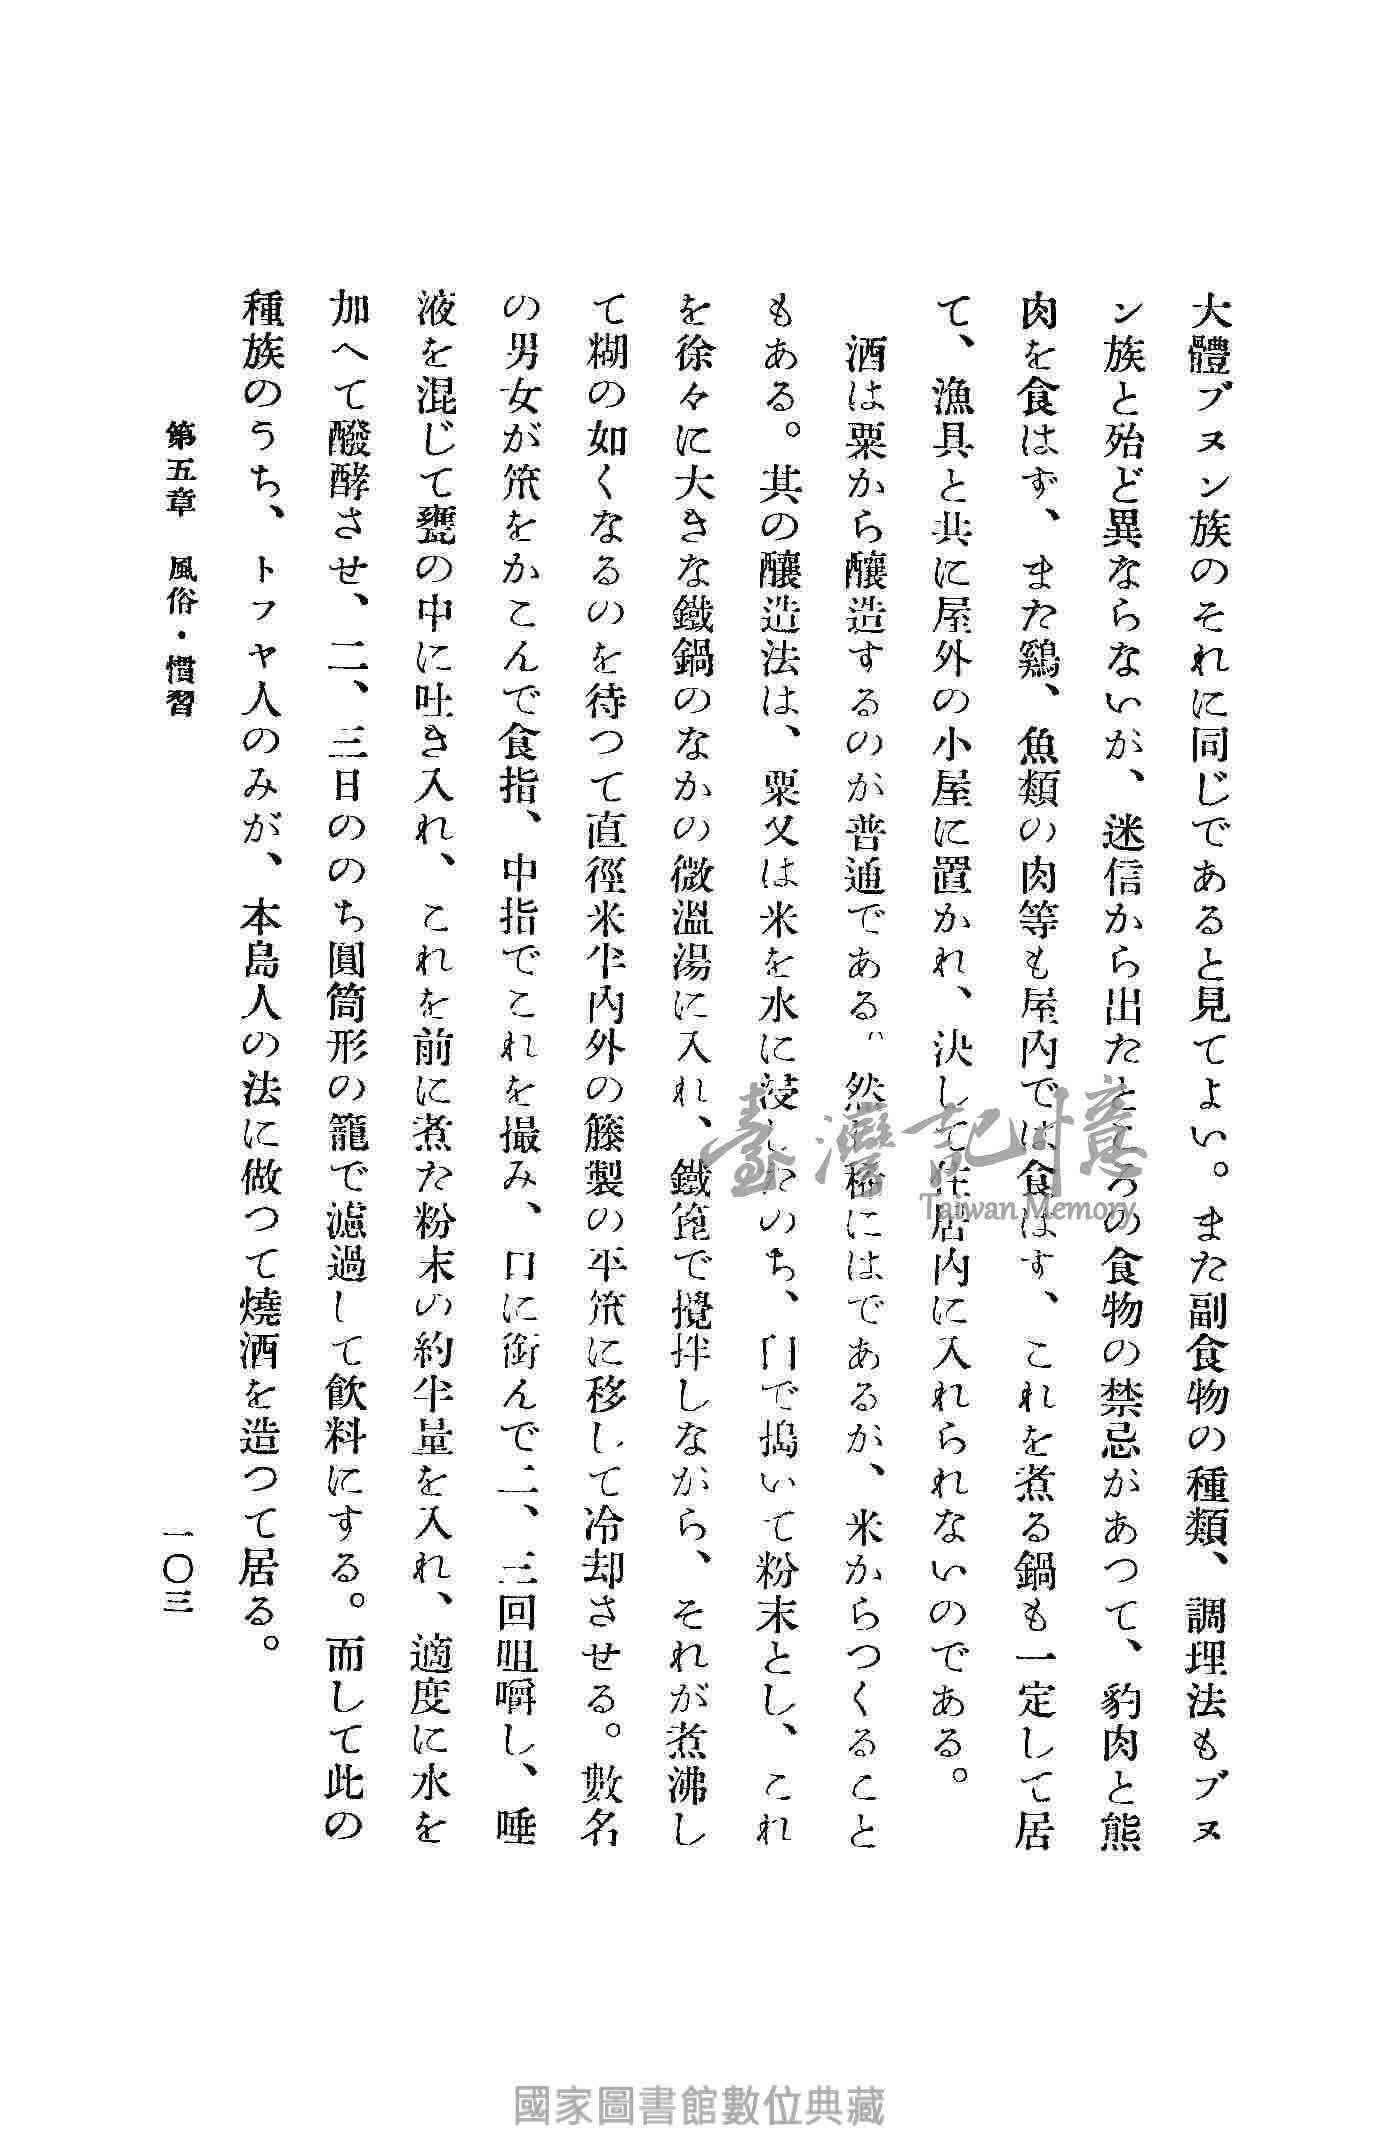 大體ブヌン族のそれに同じであると見てよい。また副食物の種類、調理法もブヌ
ン族と殆ど異ならないが、迷信から出たところの食物の禁忌があつて、豹肉と熊
肉を食はず、また鷄、魚類の肉等も屋內では食はず、これを煮る鍋も一定して居
て、漁具と共に屋外の小屋に置かれ、決して住居内に入れられないのである。
酒は粟から釀造するのが普通である。然し稀にはであるが、米からつくること
もある。其の釀造法は、粟又は米を水に浸したのち、臼で搗いて粉末とし、これ
を徐々に大きな鐵鍋のなかの微溫湯に入れ、鐵箆で攪拌しながら、それが煮沸し
て糊の如くなるのを待つて直徑米半內外の籐製の平笊に移して冷却させる。數名
の男女が笊をかこんで食指、中指でこれを撮み、口に銜んで二、三回咀嚼し、唾
液を混じて甕の中に吐き入れ、これを前に煮た粉末の約半量を入れ、適度に水を
加へて醱酵させ、二、三日ののち圓筒形の籠で濾過して飮料にする。而して此の
種族のうち、トフヤ人のみが、本島人の法に做つて燒酒を造つて居る。
第五章 風俗・慣習
一〇三
臺灣記憶
Taiwan Memory
國家圖書館數位典藏